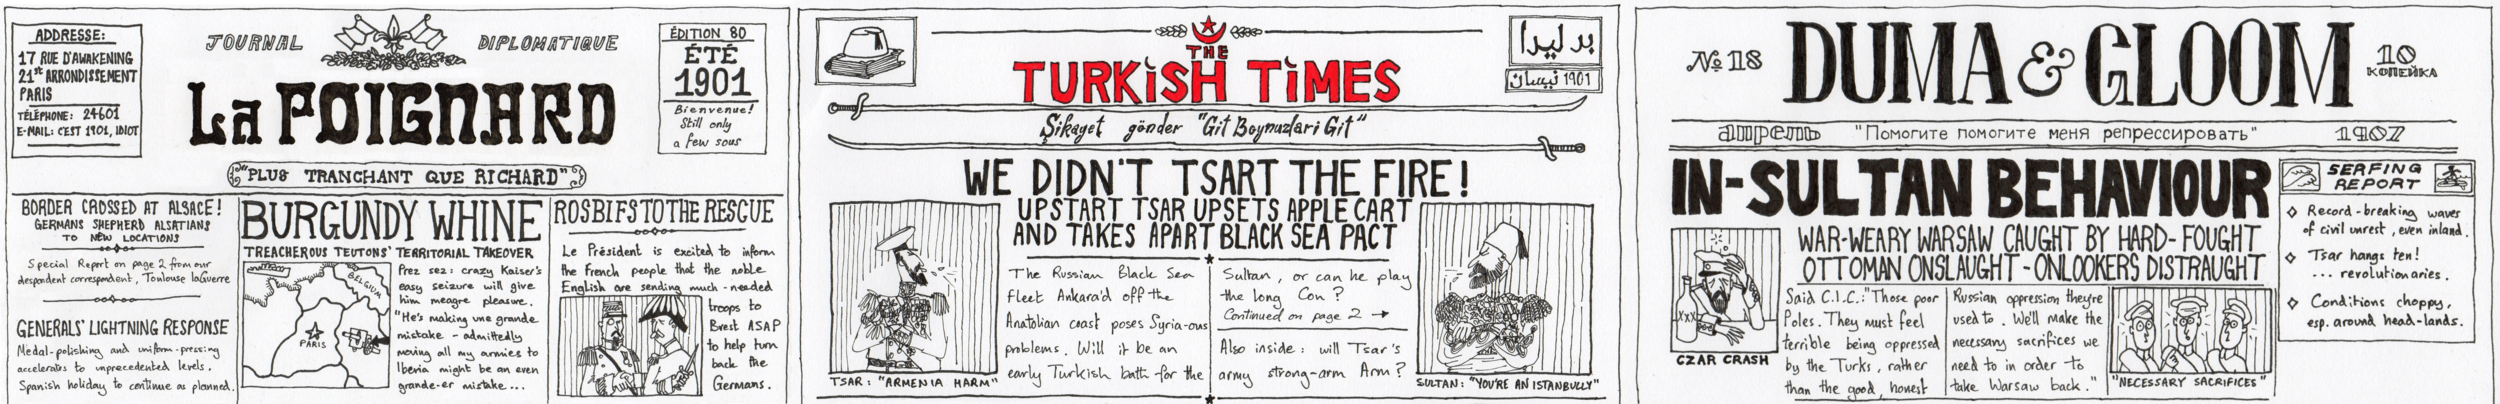 ADDRESSE:
17 RUE D'AWAKENING
21st ARRONDISSEMENT
PARIS
TÉLÉPHONE: 24601
E-MAIL: C'EST 1901, IDIOT
JOURNAL DIPLOMATIQUE
La POIGNARD
"PLUS TRANCHANT QUE RICHARD"
ÉDITION 80
ÉTÉ
1901
Bienvenue!
Still only
a few sous
BORDER CROSSED AT ALSACE!
GERMANS SHEPHERD ALSATIANS
TO NEW LOCATIONS
Special Report on page 2 from our
despondent correspondent, Toulouse laGuerre
GENERALS' LIGHTNING RESPONSE
Medal-polishing and uniform-pressing
accelerates to unprecedented levels.
Spanish holiday to continue as planned.
BURGUNDY WHINE
TREACHEROUS TEUTONS' TERRITORIAL TAKEOVER
BELGIUM
PARIS
Prez sez: crazy Kaiser's
easy seizure will give
him meagre pleasure.
"He's making une grande
mistake - admittedly
moving all my armies to
Iberia might be an even
grande-er mistake...
ROSBIFS TO THE RESCUE
Le Président is excited to inform
the French people that the noble
English are sending much-needed
troops to
Brest ASAP
to help turn
back the
Germans.
THE
TURKISH TIMES
بد ليرا
نيسان 1901
Şikayet gönder "Git Boynuzlari Git"
WE DIDN'T TSART THE FIRE!
UPSTART TSAR UPSETS APPLE CART
AND TAKES APART BLACK SEA PACT
TSAR: "ARMENIA HARM"
The Russian Black Sea
Fleet Ankara'd off the
Anatolian coast poses Syria-ous
problems. Will it be an
early Turkish bath for the
Sultan, or can he play
the long Con?
Continued on page 2 →
Also inside: will Tsar's
army strong-arm Arm?
SULTAN: "YOU'RE AN ISTANBULLY"
№ 18
DUMA & GLOOM
10
КОПЕЙКА
апрель "Помогите помогите меня репрессировать" 1907
IN-SULTAN BEHAVIOUR
WAR-WEARY WARSAW CAUGHT BY HARD-FOUGHT
OTTOMAN ONSLAUGHT - ONLOOKERS DISTRAUGHT
XXX
CZAR CRASH
Said C.I.C.: "Those poor
Poles. They must feel
terrible being oppressed
by the Turks, rather
than the good, honest
Russian oppression they're
used to. We'll make the
necessary sacrifices we
need to in order to
take Warsaw back."
"NECESSARY SACRIFICES"
SERFING
REPORT
Record-breaking waves
of civil unrest, even inland.
Tsar hangs ten!
... revolutionaries.
Conditions choppy,
esp. around head-lands.